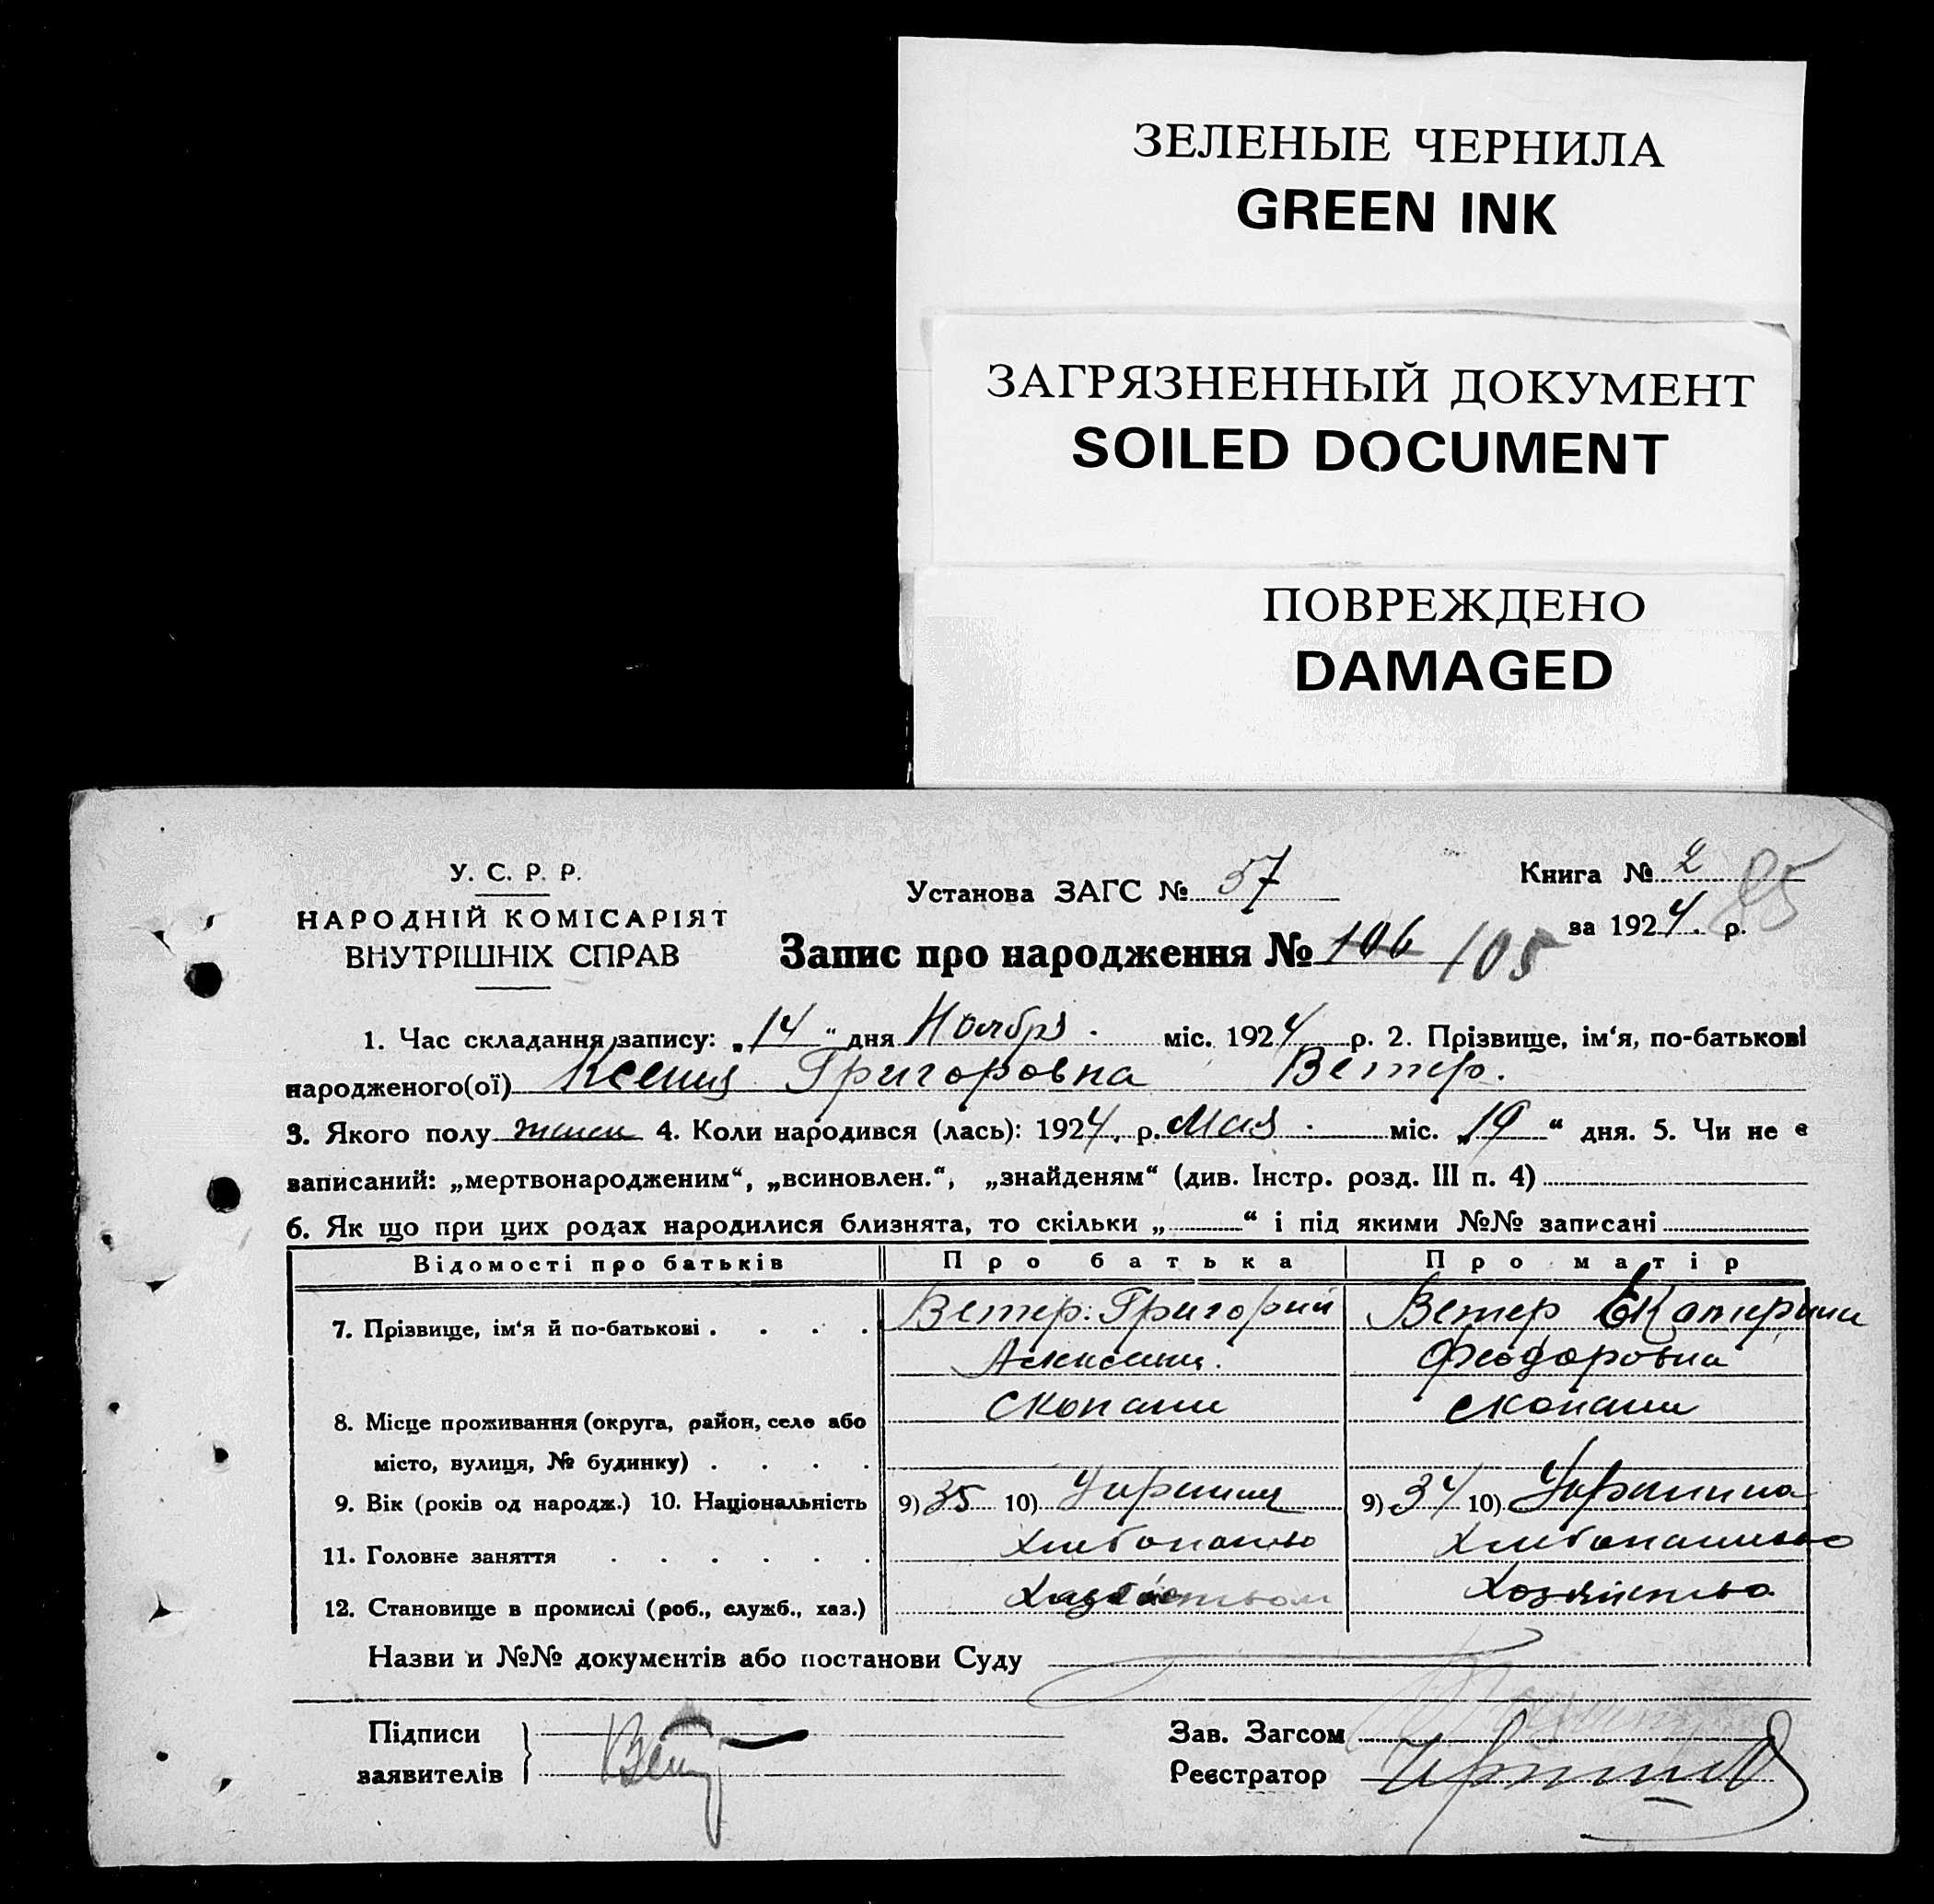 ЗЕЛЕНЫЕ ЧЕРНИЛА
GREEN INK
ЗАГРЯЗНЕННЫЙ ДОКУМЕНТ
SOILED DOCUMENT
ПОВРЕЖДЕНО
DAMAGED
У. С. Р. Р.
НАРОДНІЙ КОМІСАРІЯТ
ВНУТРІШНІХ СПРАВ
Установа ЗАГС № 57
Книга № 2 85
за 1924. р.
Запис про народження № 106 105
1. Час складання запису: „14“ дня Ноября. міс. 1924 р. 2. Прізвище, ім‘я, по-батькові
народженого(ої) Ксения Григоровна Ветер.
3. Якого полу женск 4. Коли народився (лась): 1924, р. Мая. міс. „19“ дня. 5. Чи не є
записаний: „мертвонародженим“, „всиновлен.“, „знайденям“ (див. Інстр. розд. III п. 4)
6. Як що при цих родах народилися близнята, то скільки „ “ і під якими №№ записані
Відомості про батьків Про батька Про матір
7. Прізвище, ім‘я й по-батькові . . . . Ветер. Григорий Ветер Екатерина
Феодоровна
8. Місце проживання (округа, район, село або Скопани Скопани
місто, вулиця, № будинку) . . . .
9. Вік (років од народж.) 10. Національність 9) 35 10) Украинц 9) 34 10) Украинка
11. Головне заняття . . . . . . Хлебопаш
12. Становище в промислі (роб., служб., хаз.) Хозяйство
Назви и №№ документів або постанови Суду
Підписи
заявителів
Зав. Загсом
Реєстратор